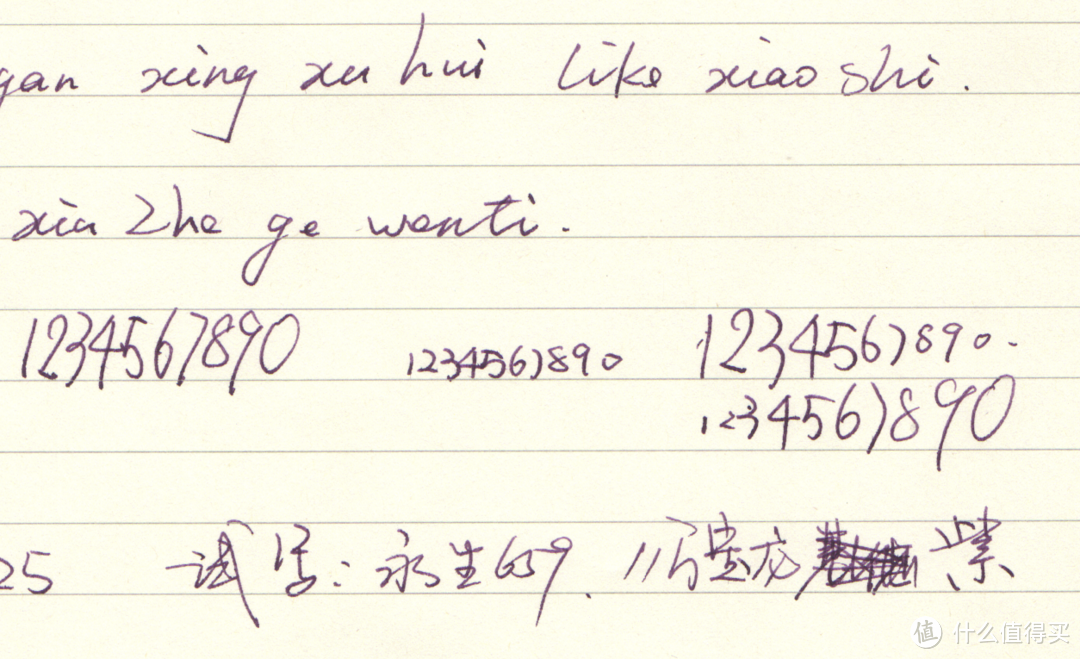 gan xing xu hui like xiao shi.
xia zhe ge wenti.
1234567890 1234567890 1234567890.
1234567890
25 试写：永生659. 紫
值 什么值得买